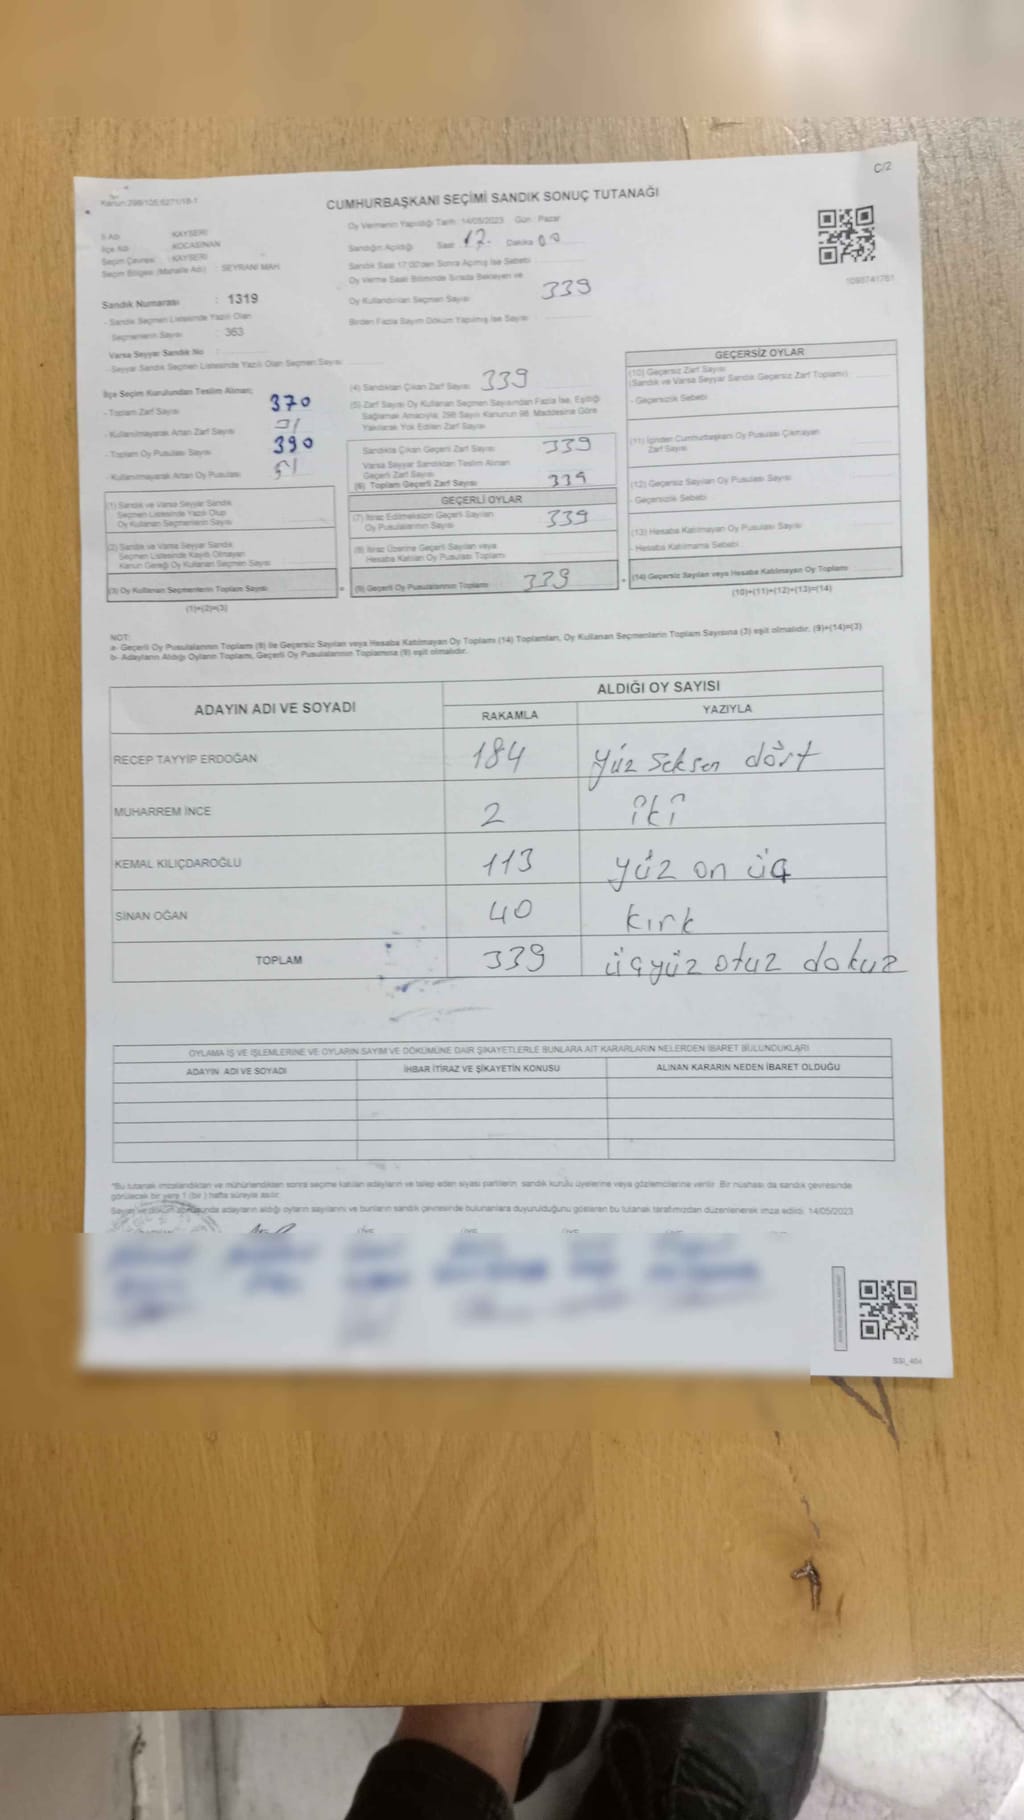 C/2
CUMHURBAŞKANI SEÇİMİ SANDIK SONUÇ TUTANAĞI
İl Adı : KAYSERİ
İlçe Adı : KOCASİNAN
Seçim Çevresi : KAYSERİ
Seçim Bölgesi (Mahalle Adı) : SEYRANİ MAH.
Sandık Numarası : 1319
- Sandık Seçmen Listesinde Yazılı Olan
Seçmenlerin Sayısı : 363
Varsa Seyyar Sandık No
- Seyyar Sandık Seçmen Listesinde Yazılı Olan Seçmen Sayısı
Oy Vermenin Yapıldığı Tarih : 14/05/2023 Gün : Pazar
Sandığın Açıldığı Saat 17. Dakika 00
Sandık Saat 17:00'den Sonra Açılmış İse Sebebi
Oy Verme Saati Bitiminde Sırada Bekleyen ve
Oy Kullandırılan Seçmen Sayısı 339
Birden Fazla Sayım Döküm Yapılmış İse Sayısı
1090741761
İlçe Seçim Kurulundan Teslim Alınan;
- Toplam Zarf Sayısı 370
- Kullanılmayarak Artan Zarf Sayısı 31
- Toplam Oy Pusulası Sayısı 390
- Kullanılmayarak Artan Oy Pusulası 51
(1) Sandık ve Varsa Seyyar Sandık
Seçmen Listesinde Yazılı Olup
Oy Kullanan Seçmenlerin Sayısı
(2) Sandık ve Varsa Seyyar Sandık
Seçmen Listesinde Kayıtlı Olmayan
Kanun Gereği Oy Kullanan Seçmen Sayısı
(3) Oy Kullanan Seçmenlerin Toplam Sayısı
(1)+(2)=(3)
(4) Sandıktan Çıkan Zarf Sayısı 339
(5) Zarf Sayısı Oy Kullanan Seçmen Sayısından Fazla İse, Eşitliği
Sağlamak Amacıyla, 298 Sayılı Kanunun 98. Maddesine Göre
Yakılarak Yok Edilen Zarf Sayısı
Sandıkta Çıkan Geçerli Zarf Sayısı 339
Varsa Seyyar Sandıktan Teslim Alınan
Geçerli Zarf Sayısı
(6) Toplam Geçerli Zarf Sayısı 339
GEÇERLİ OYLAR
(7) İtiraz Edilmeksizin Geçerli Sayılan
Oy Pusulalarının Sayısı 339
(8) İtiraz Üzerine Geçerli Sayılan veya
Hesaba Katılan Oy Pusulası Toplamı
(9) Geçerli Oy Pusulalarının Toplamı 339
GEÇERSİZ OYLAR
(10) Geçersiz Zarf Sayısı
(Sandık ve Varsa Seyyar Sandık Geçersiz Zarf Toplamı)
- Geçersizlik Sebebi
(11) İçinden Cumhurbaşkanı Oy Pusulası Çıkmayan
Zarf Sayısı
(12) Geçersiz Sayılan Oy Pusulası Sayısı
- Geçersizlik Sebebi
(13) Hesaba Katılmayan Oy Pusulası Sayısı
- Hesaba Katılmama Sebebi
(14) Geçersiz Sayılan veya Hesaba Katılmayan Oy Toplamı
(10)+(11)+(12)+(13)=(14)
NOT:
a- Geçerli Oy Pusulalarının Toplamı (9) ile Geçersiz Sayılan veya Hesaba Katılmayan Oy Toplamı (14) Toplamları, Oy Kullanan Seçmenlerin Toplam Sayısına (3) eşit olmalıdır. (9)+(14)=(3)
b- Adayların Aldığı Oyların Toplamı, Geçerli Oy Pusulalarının Toplamına (9) eşit olmalıdır.
ADAYIN ADI VE SOYADI
ALDIĞI OY SAYISI
RAKAMLA YAZIYLA
RECEP TAYYİP ERDOĞAN 184 yüz seksen dört
MUHARREM İNCE 2 iki
KEMAL KILIÇDAROĞLU 113 yüz on üç
SİNAN OĞAN 40 kırk
TOPLAM 339 üçyüz otuz dokuz
OYLAMA İŞ VE İŞLEMLERİNE VE OYLARIN SAYIM VE DÖKÜMÜNE DAİR ŞİKAYETLERLE BUNLARA AİT KARARLARIN NELERDEN İBARET BULUNDUKLARI
ADAYIN ADI VE SOYADI İHBAR İTİRAZ VE ŞİKAYETİN KONUSU ALINAN KARARIN NEDEN İBARET OLDUĞU
"Bu tutanak imzalandıktan ve mühürlendikten sonra seçime katılan adayların ve talep eden siyasi partilerin sandık kurulu üyelerine veya gözlemcilerine verilir. Bir nüshası da sandık çevresinde
görülecek bir yere 1 (bir ) hafta süreyle asılır.
Sayım ve döküm sonucunda adayların aldığı oyların sayılarını ve bunların sandık çevresinde bulunanlara duyurulduğunu gösteren bu tutanak tarafımızdan düzenlenerek imza edildi. 14/05/2023